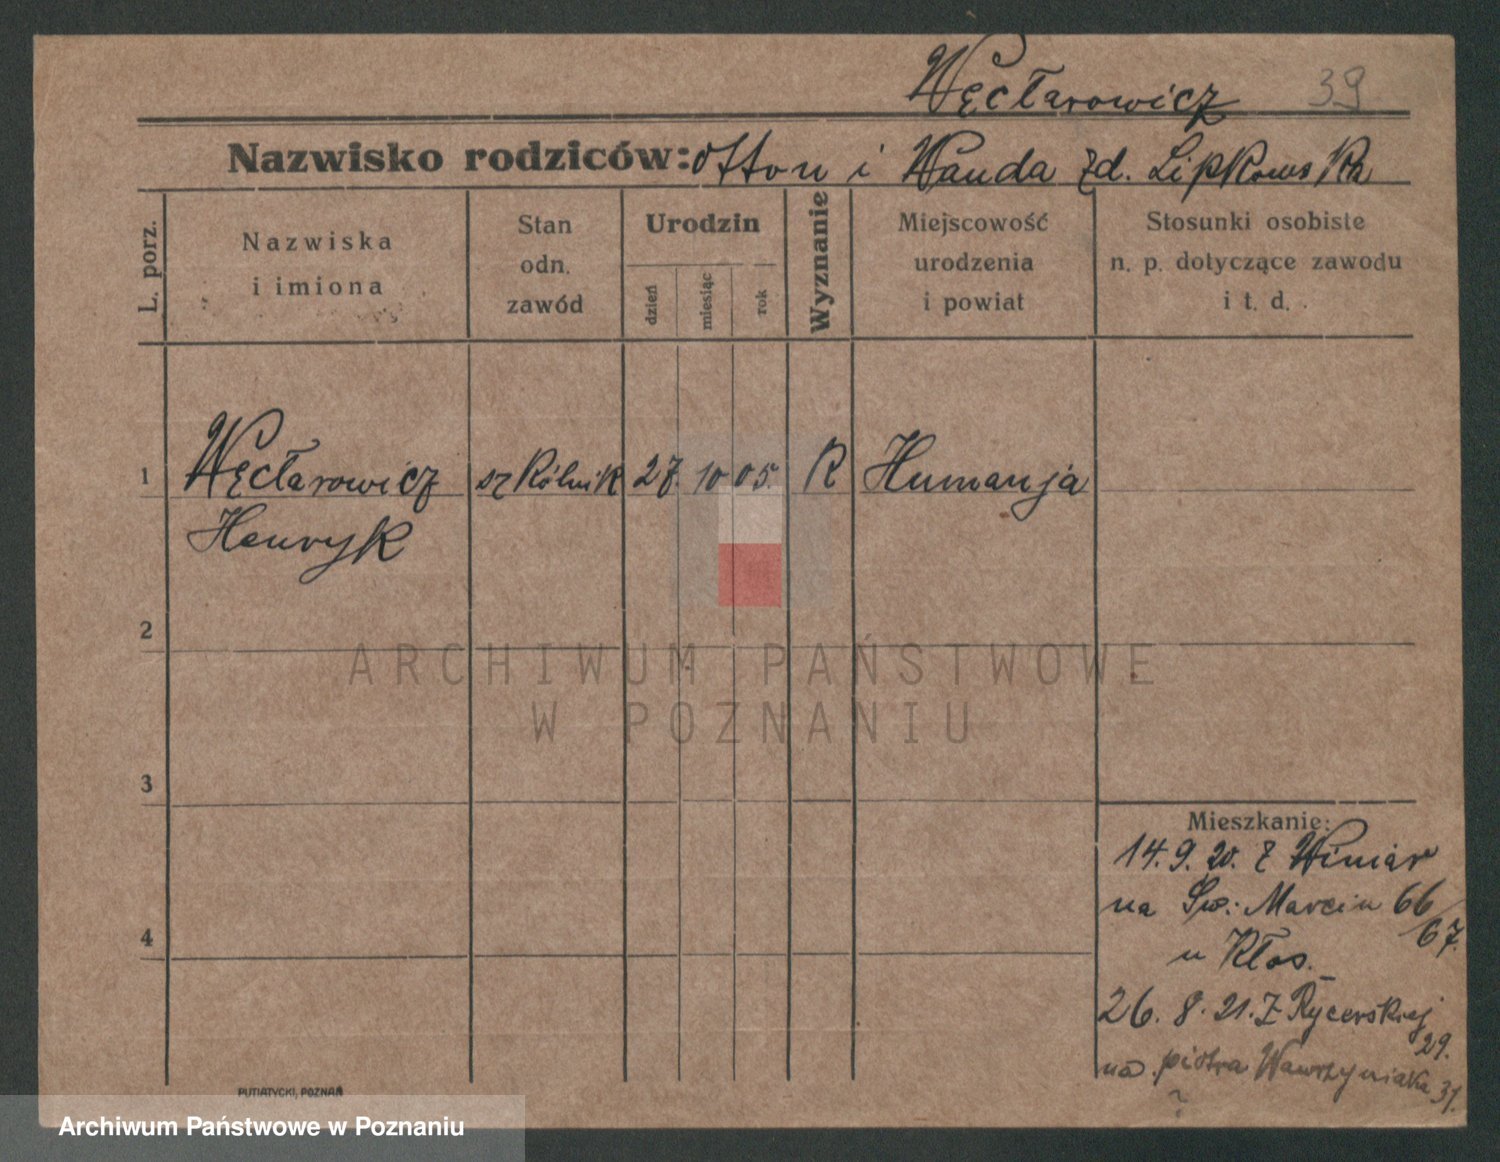 Węcłarowicz 39
Nazwisko rodziców: Otton i Wanda zd. Lipkowska
L. porz.
Nazwiska
i imiona
Stan
odn.
zawód
Urodzin
dzień
miesiąc
rok
Wyznanie
Miejscowość
urodzenia
i powiat
Stosunki osobiste
n. p. dotyczące zawodu
i t. d.
1 Węcłarowicz szkólnik 27. 10 05. R Humanja
Henryk
2
3
4
Mieszkanie:
14. 9. 20. z Winiar
na Św: Marcin 66/67.
u Kłos.
26. 8. 21. z Rycerskiej 29.
na piotra Wawrzyniaka 31.
?
PUTIATYCKI, POZNAŃ
ARCHIWUM PAŃSTWOWE
W POZNANIU
Archiwum Państwowe w Poznaniu